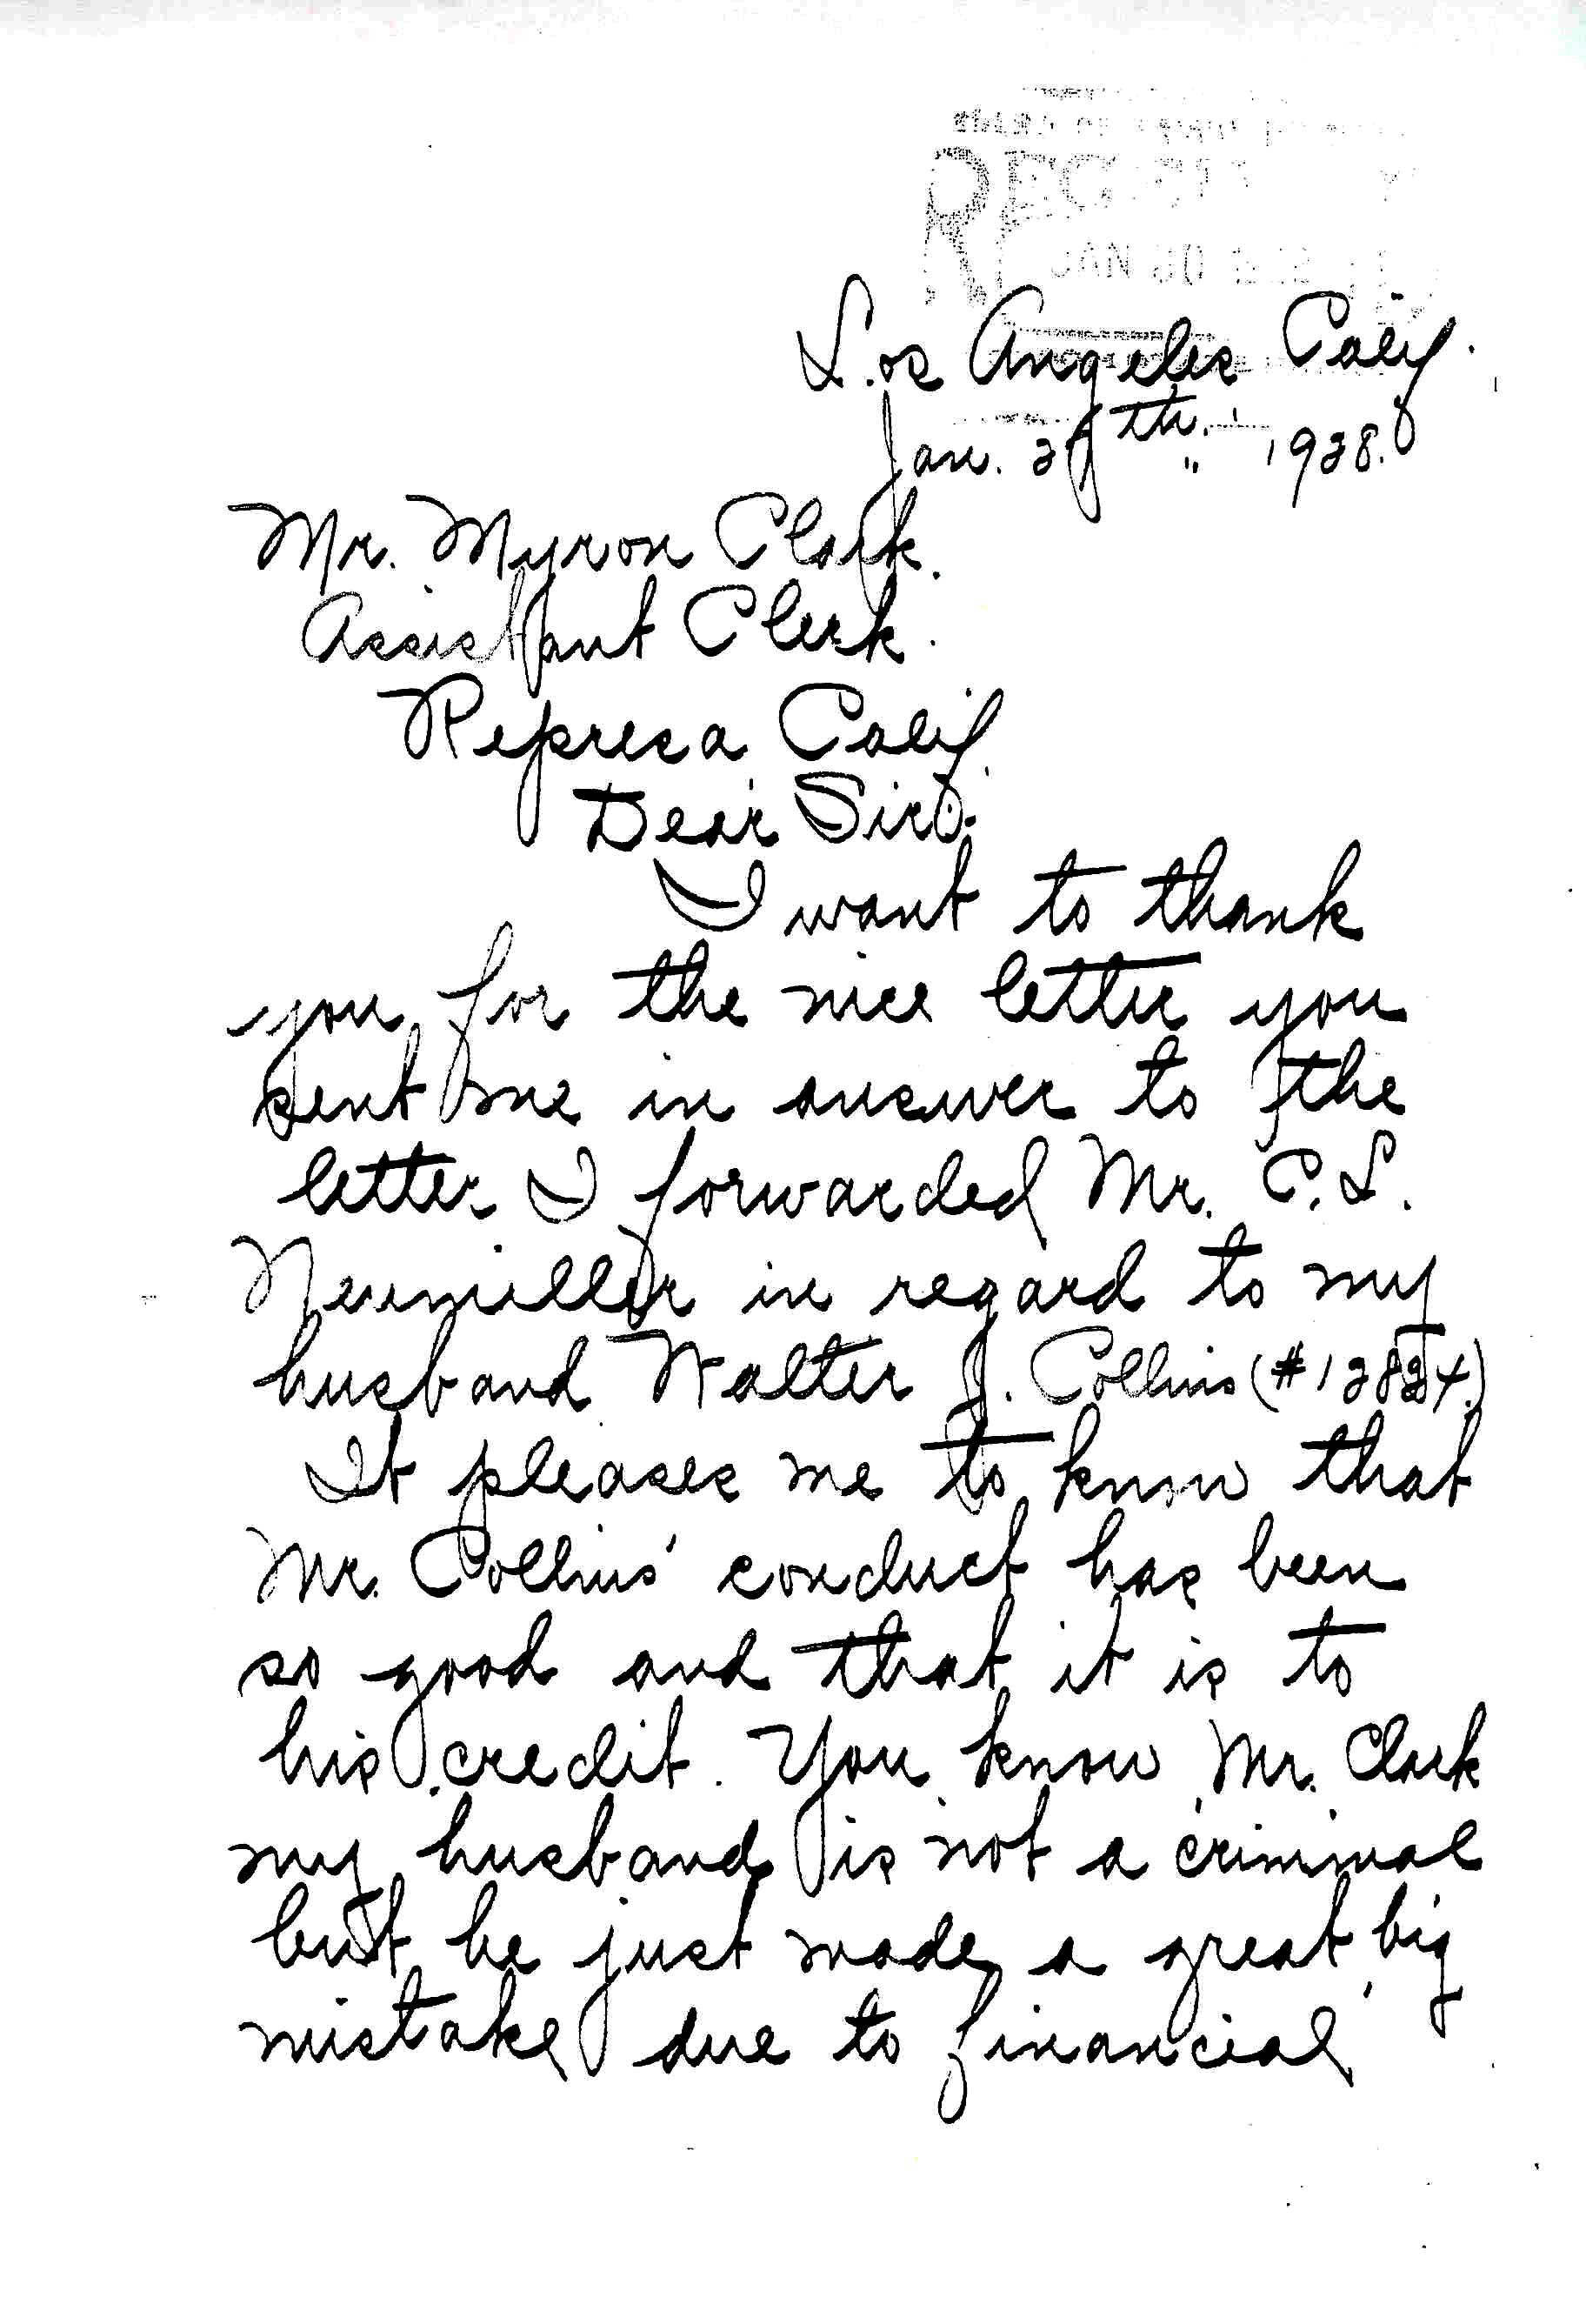 JAN 30
Los Angeles Calif.
Jan. 1928.
Mr. Myron Clark.
Assistant Clerk.
Represa Calif.
Dear Sir:-
I want to thank
you for the nice letter you
sent me in answer to the
letter I forwarded Mr. C. L.
Neumiller in regard to my
husband Walter J. Collins
It pleases me to know that
Mr. Collins' conduct has been
so good and that it is to
his credit. You know, Mr. Clark
my husband is not a criminal
but he just made a great big
mistake due to financial